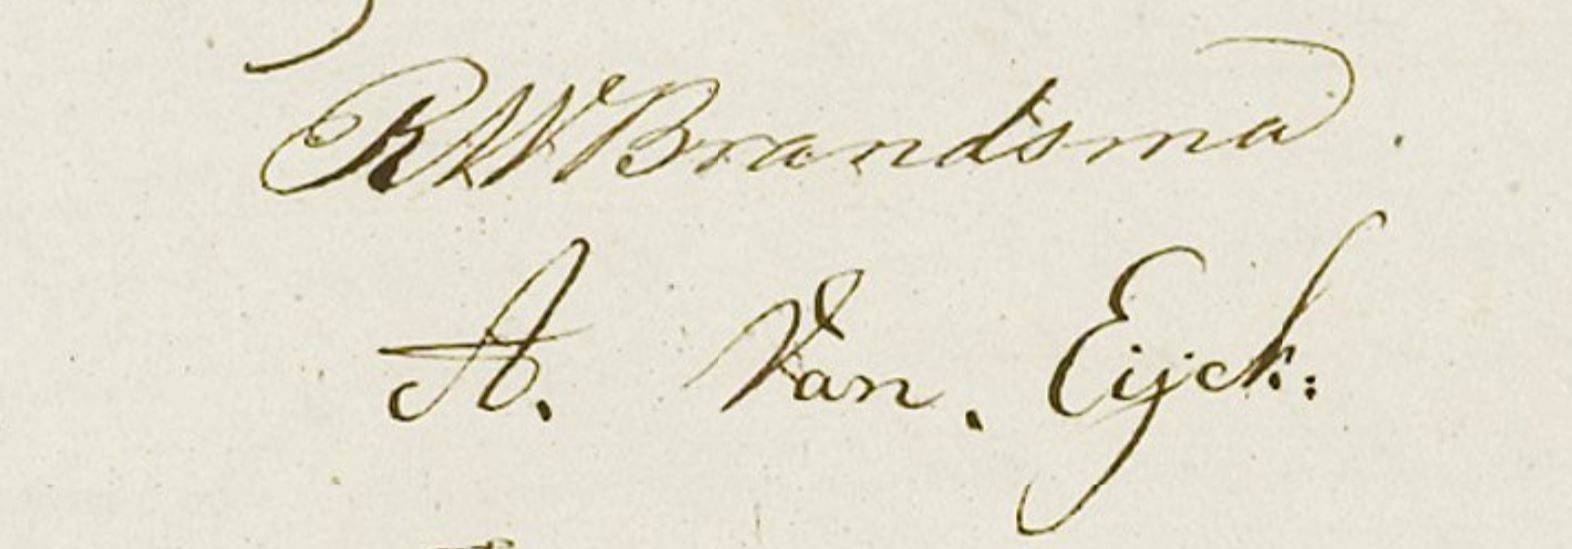 RW Brandsma.
A. Van. Eijck.